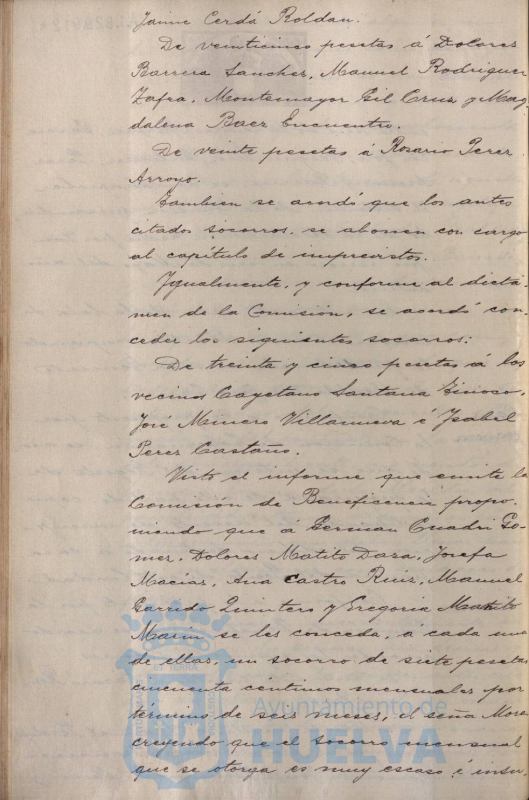 Jaime Cerdá Roldan.
De veinticinco pesetas á Dolores
Barrera Sanchez, Manuel Rodriguez
Zafra, Montemayor Gil Cruz y Mag
dalena Baez Encuentro.
De veinte pesetas á Rosario Perez
Arroyo.
Tambien se acordó que los antes
citados socorros, se abonen con cargo
al capítulo de imprevistos.
Igualmente, y conforme al dictá-
men de la Comisión, se acordó con
ceder los siguientes socorros:
De treinta y cinco pesetas á los
vecinos Cayetano Santana Tinoco,
José Minero Villanueva é Isabel
Perez Castaño.
Visto el informe que emite la
Comisión de Beneficencia propo
niendo que á German Cuadri Go-
mez, Dolores Matito Daza, Josefa
Macias, Ana Castro Ruiz, Manuel
Garrido Quintero y Gregoria Matito
Marin se les conceda, á cada una
de ellas, un socorro de siete pesetas
cincuenta céntimos mensuales por
término de seis meses, el señor Mora
creyendo que el socorro mensual
que se otorga es muy escaso é insu,
Ayuntamiento de
HUELVA